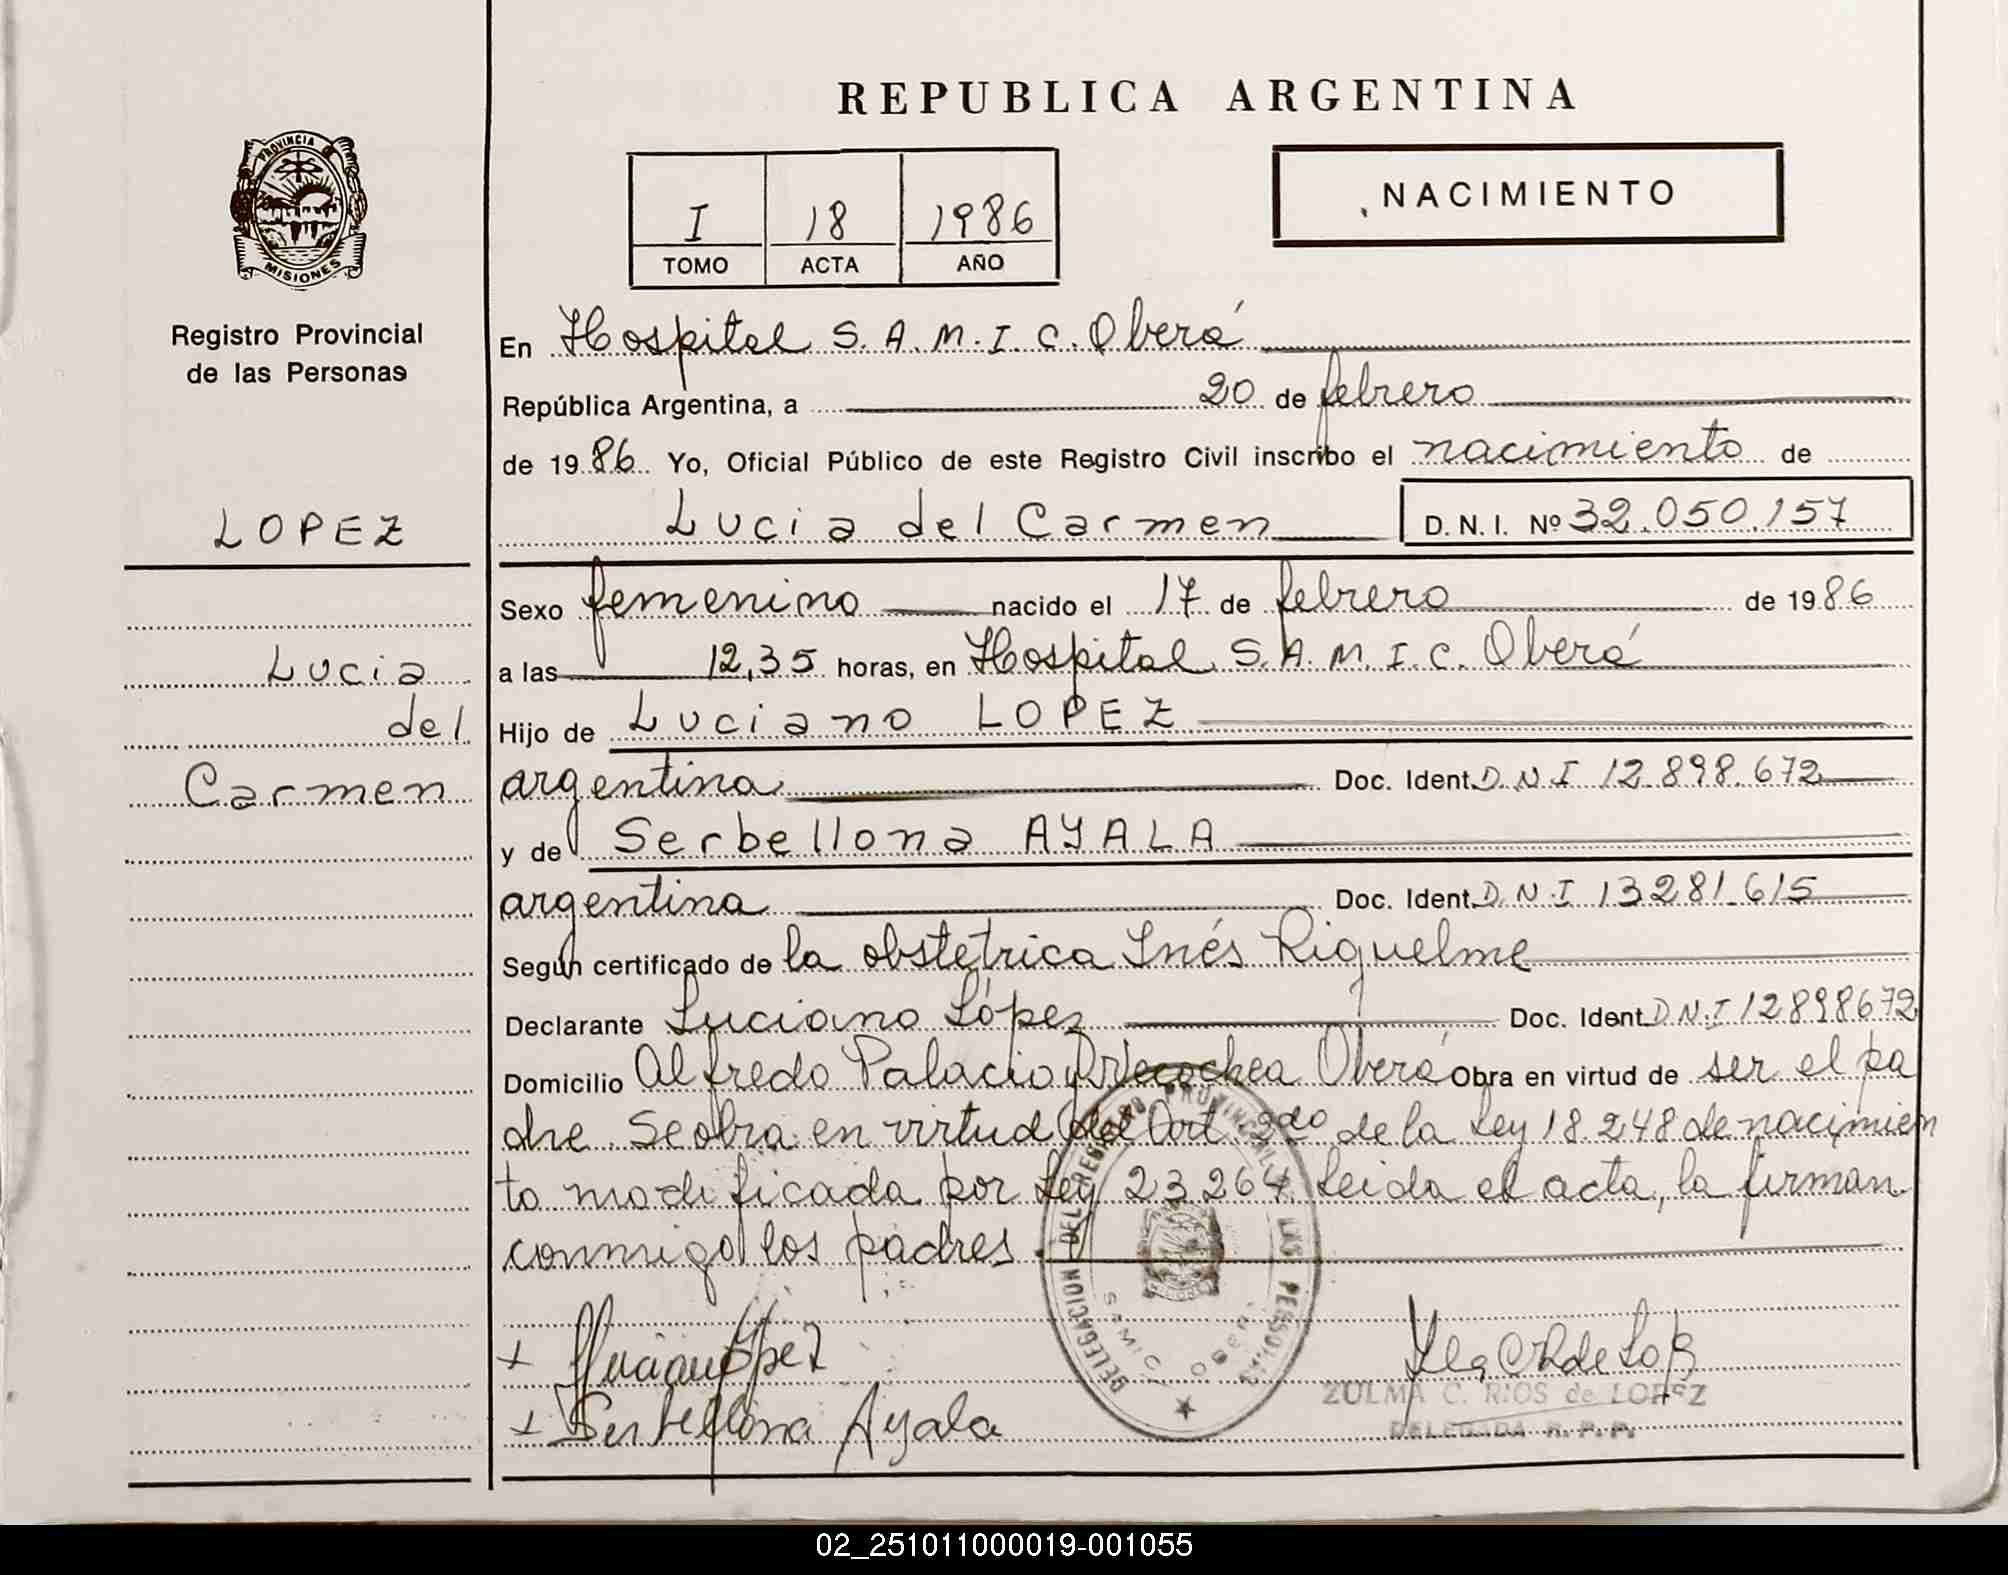 REPUBLICA ARGENTINA
PROVINCIA DE
MISIONES
Registro Provincial
de las Personas
I 18 1986
TOMO ACTA AÑO
NACIMIENTO
LOPEZ
Lucia
del
Carmen
En Hospital S.A.M.I.C. Oberá
República Argentina, a 20 de febrero
de 1986 Yo, Oficial Público de este Registro Civil inscribo el nacimiento de
Lucia del Carmen D.N.I. Nº 32.050.157
Sexo femenino nacido el 17 de febrero de 1986
a las 12,35 horas, en Hospital S.A.M.I.C. Oberá
Hijo de Luciano LOPEZ
argentina Doc. Ident. D.N.I 12.898.672
y de Serbellona AYALA
argentina Doc. Ident. D.N.I 13281.615
Según certificado de la obstetrica Inés Riquelme
Declarante Luciano López Doc. Ident. D.N.I 12898672
Domicilio Alfredo Palacio y Necochea Oberá Obra en virtud de ser el pa
dre. Se obra en virtud del Art. 2do de la Ley 18.248 de nacimien
to modificada por Ley 23264. Leida el acta, la firman
conmigo los padres.
+ Luciano López
+ Serbellona Ayala
DELEGACION DEL REGISTRO PROVINCIAL DE LAS PERSONAS
SAMIC OBERA
ZULMA C. RIOS de LOPEZ
DELEGADA R.P.P.
02_251011000019-001055